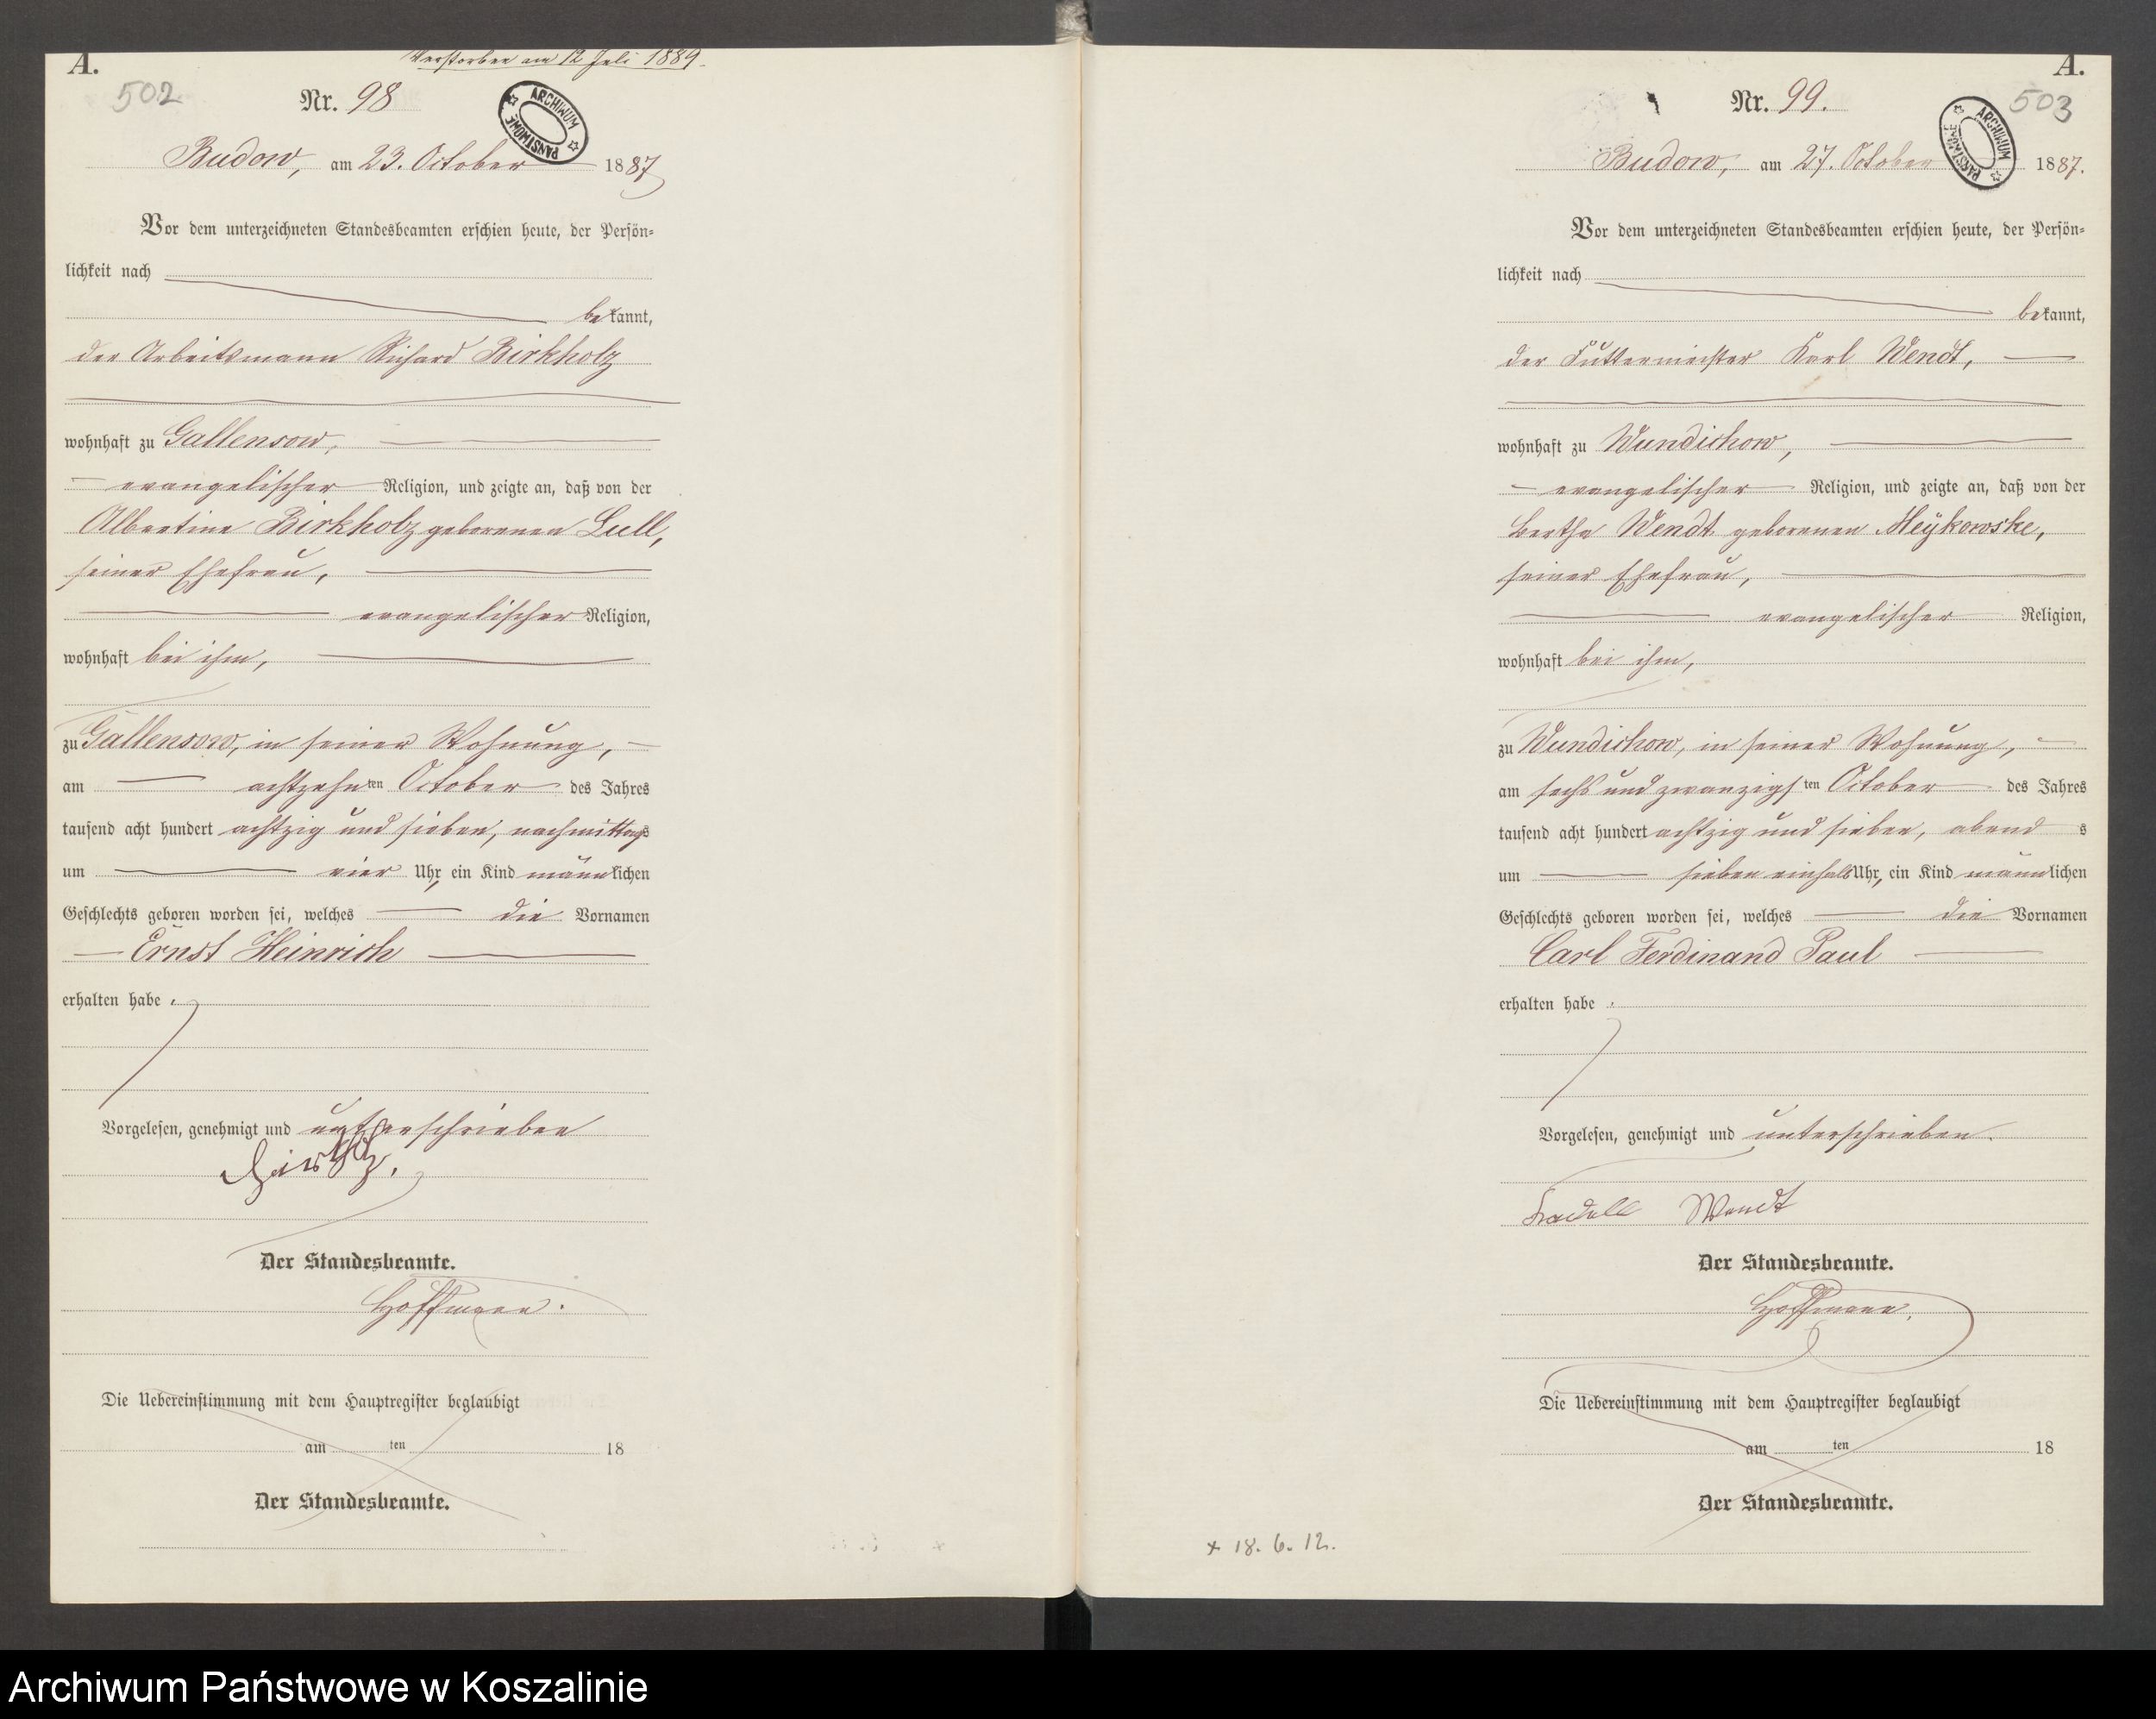 A.
Verstorben am 12 Juli 1889.
502
Nr. 98
ARCHIWUM PAŃSTWOWE
Budow, am 23. October 1887
Vor dem unterzeichneten Standesbeamten erschien heute, der Persön-
lichkeit nach
bekannt,
der Arbeitsmann Richard Birkholz
wohnhaft zu Gallensow,
evangelischer Religion, und zeigte an, daß von der
Albertine Birkholz geborenen Lull,
seiner Ehefrau,
evangelischer Religion,
wohnhaft bei ihm,
zu Gallensow, in seiner Wohnung,
am achtzehnten October des Jahres
tausend acht hundert achtzig und sieben, nachmittags
um vier Uhr, ein Kind männlichen
Geschlechts geboren worden sei, welches die Vornamen
Ernst Heinrich
erhalten habe.
Vorgelesen, genehmigt und unterschrieben
Der Standesbeamte.
Hoffmann.
Die Uebereinstimmung mit dem Hauptregister beglaubigt
am ten 18
Der Standesbeamte.
A.
503
Nr. 99.
ARCHIWUM PAŃSTWOWE
Budow, am 27. October 1887.
Vor dem unterzeichneten Standesbeamten erschien heute, der Persön-
lichkeit nach
bekannt,
der Futtermeister Karl Wendt,
wohnhaft zu Wundichow,
evangelischer Religion, und zeigte an, daß von der
Bertha Wendt geborenen Meÿkowske,
seiner Ehefrau,
evangelischer Religion,
wohnhaft bei ihm,
zu Wundichow, in seiner Wohnung,
am sechs und zwanzigsten October des Jahres
tausend acht hundert achtzig und sieben, abends
um sieben einhalb Uhr, ein Kind männlichen
Geschlechts geboren worden sei, welches die Vornamen
Carl Ferdinand Paul
erhalten habe.
Vorgelesen, genehmigt und unterschrieben.
Wendt
Der Standesbeamte.
Hoffmann.
Die Uebereinstimmung mit dem Hauptregister beglaubigt
am ten 18
Der Standesbeamte.
+ 18. 6. 12.
Archiwum Państwowe w Koszalinie